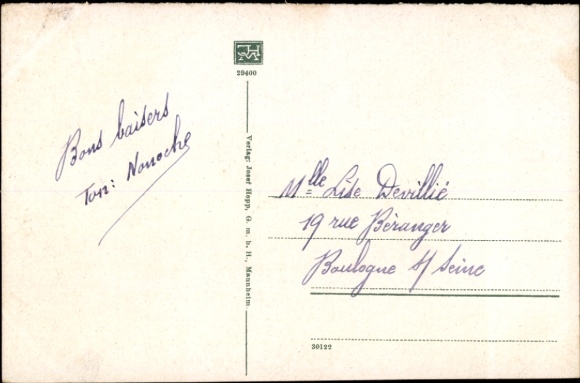 29400
Bons baisers
Ton: Nonoche
Verlag: Josef Hopp, G. m. b. H., Mannheim
Mlle Lise Devillié
19 rue Béranger
Boulogne s/ Seine
30122